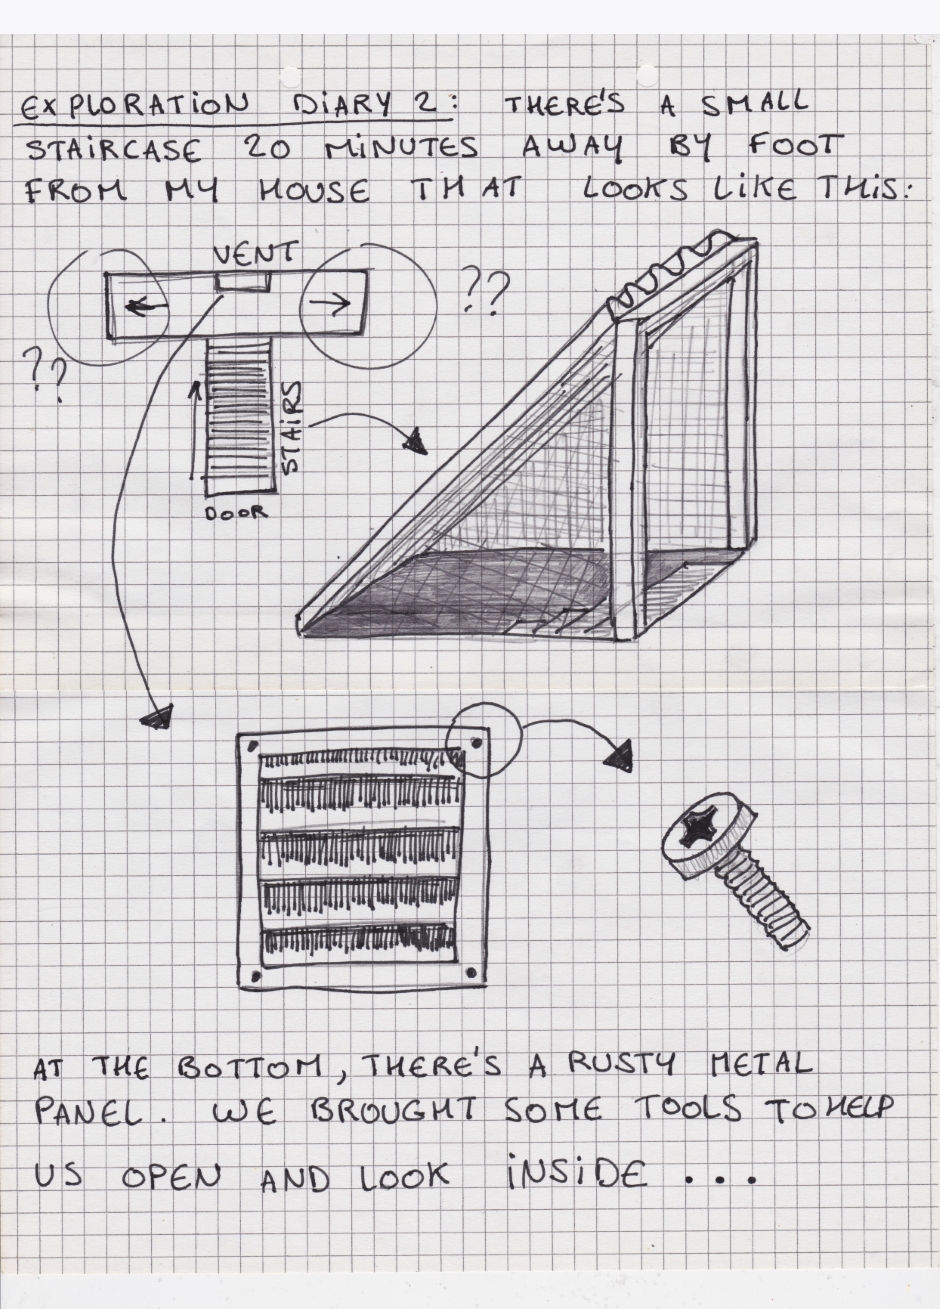 EXPLORATION DIARY 2: THERE'S A SMALL
STAIRCASE 20 MINUTES AWAY BY FOOT
FROM MY HOUSE THAT LOOKS LIKE THIS:
VENT
??
??
STAIRS
DOOR
AT THE BOTTOM, THERE'S A RUSTY METAL
PANEL. WE BROUGHT SOME TOOLS TO HELP
US OPEN AND LOOK INSIDE ...